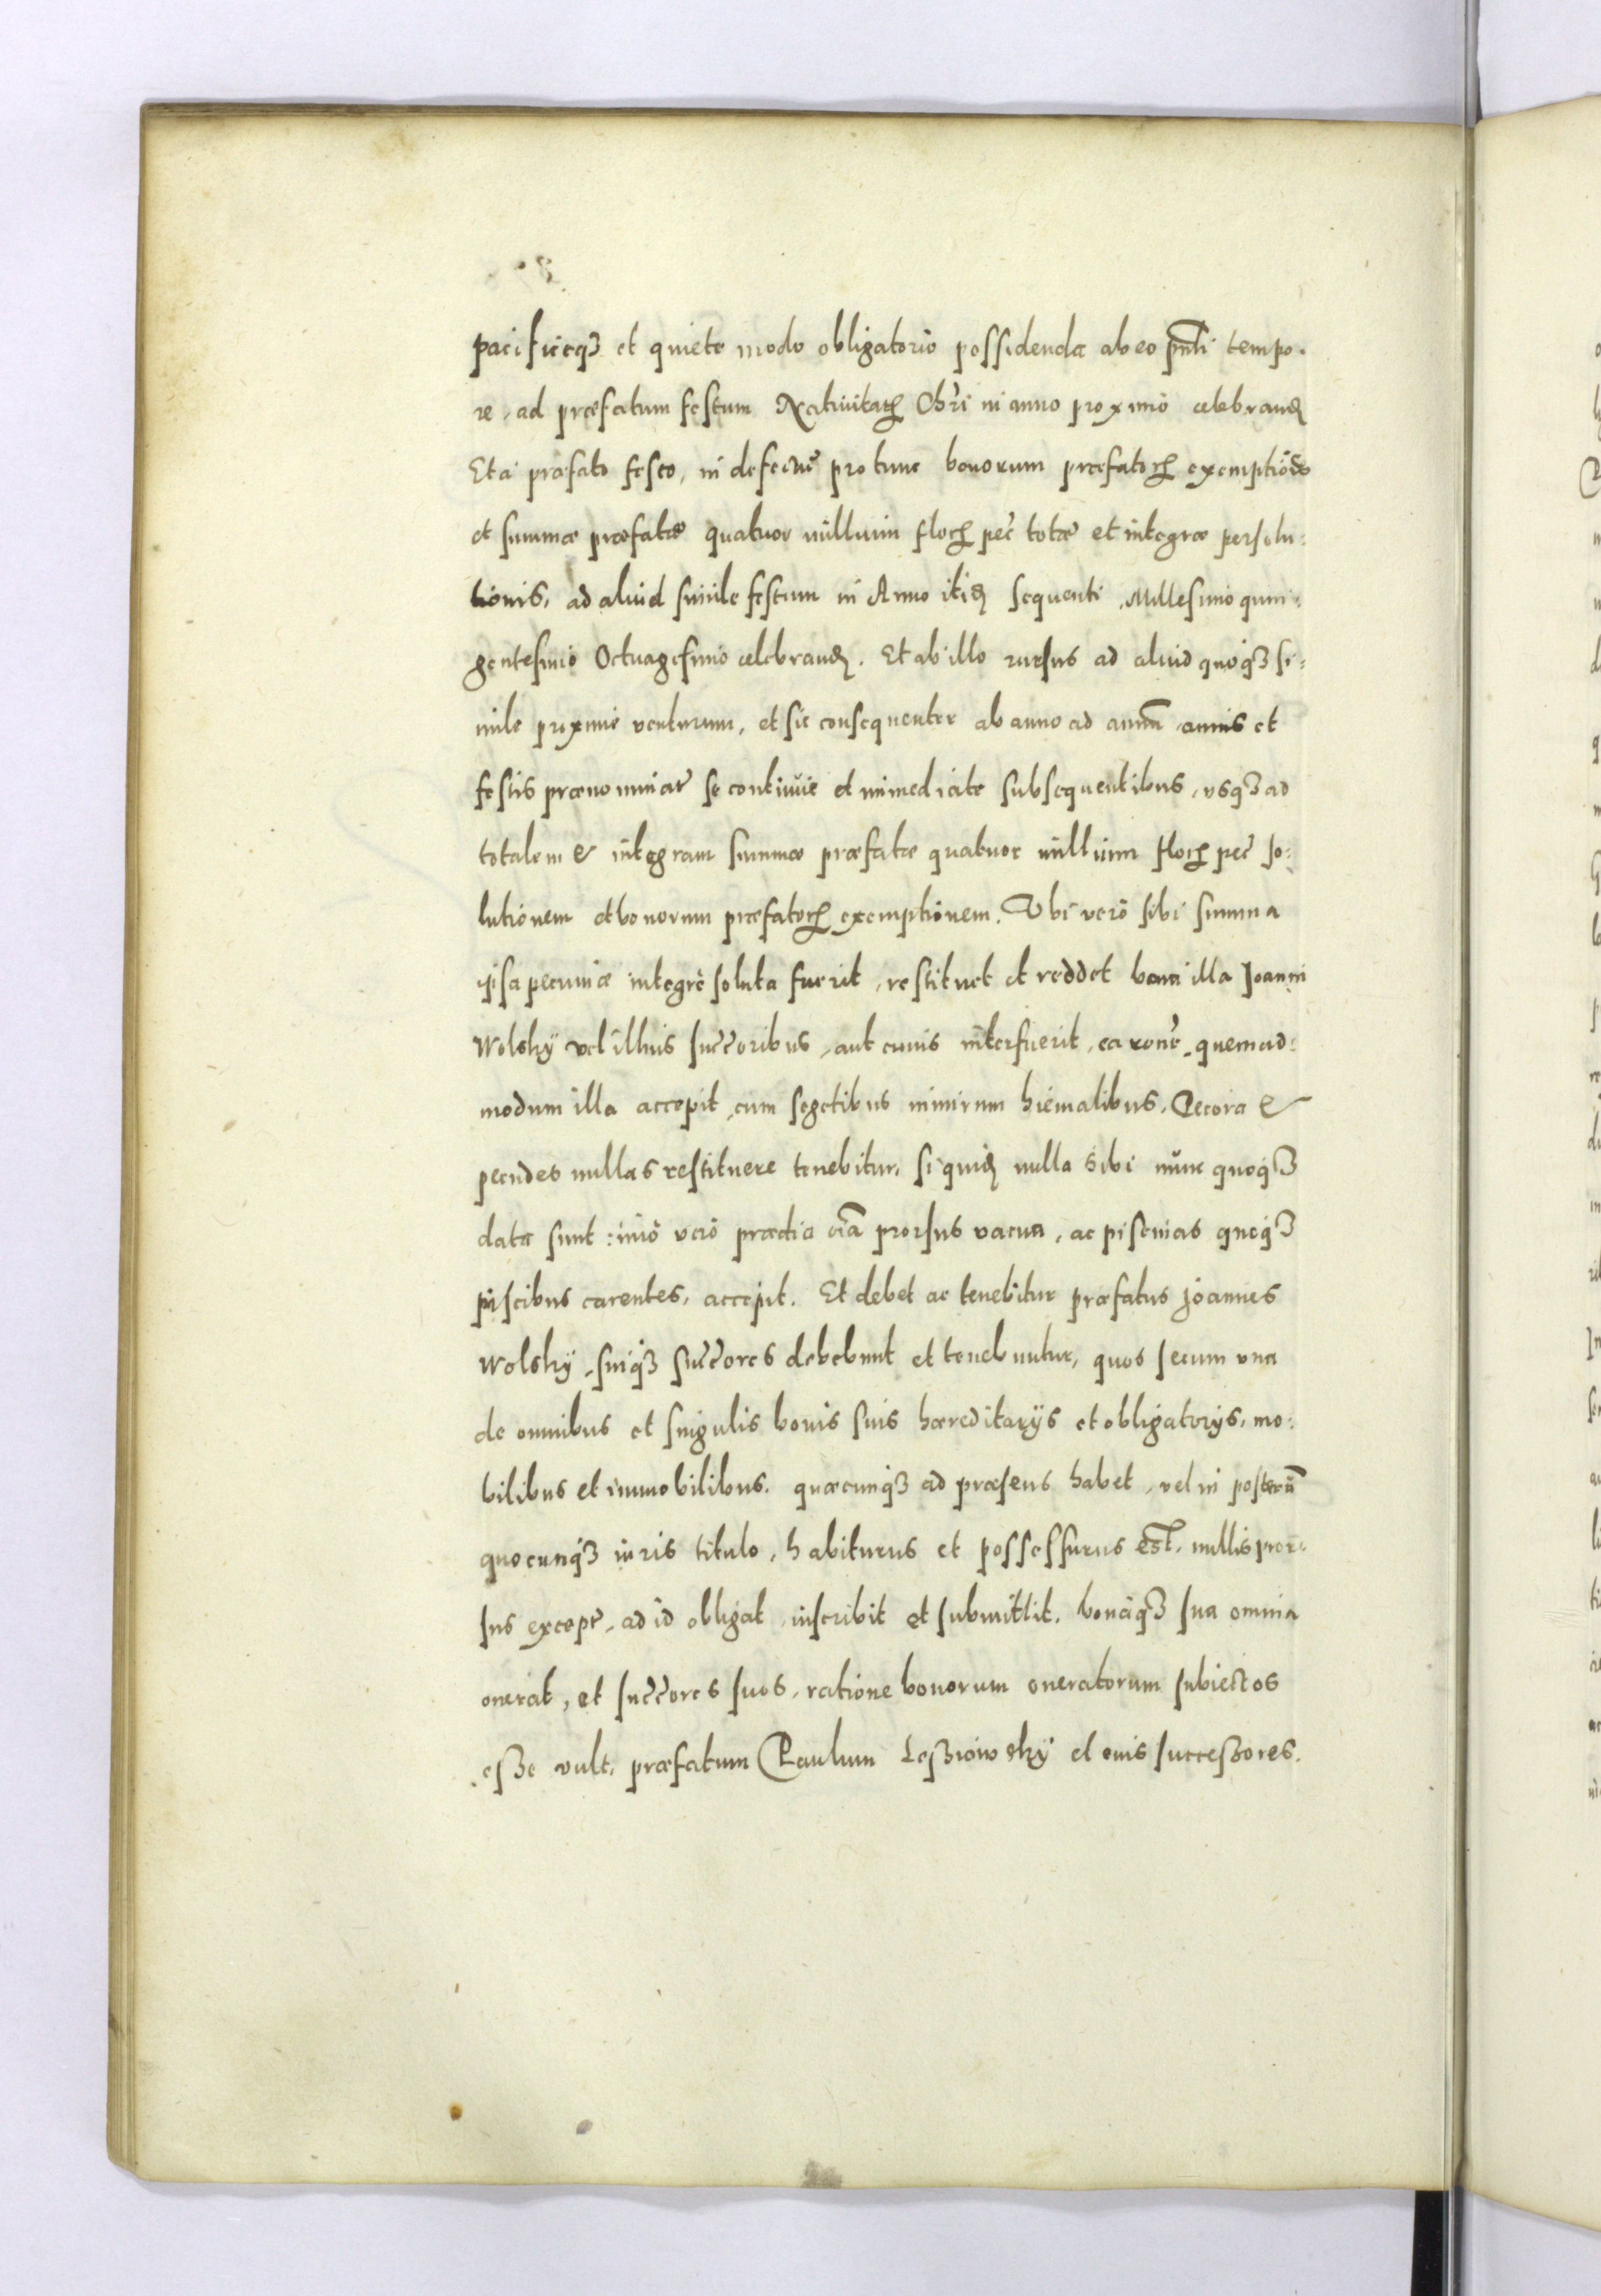 pacificeqꝫ et quiete modo obligatorio possidenda ab eo pn̄ti tempo-
re, ad præfatum festum Natiuitatꝭ Chr̄i in anno proximo celebrandꝭ
Et a præfato festo, in defectū pro tunc bonorum præfatorꝭ exemptiōis
et summæ præfatæ quatuor millium florꝭ pec̄ totæ et integræ persolu:
tionis, ad aliud simile festum in Anno itidꝭ sequenti Millesimo quin:
gentesimo Octuagesimo celebrandꝭ. Et ab illo rursus ad aliud quoqꝫ si:
mile proxime venturum, et sic consequenter ab anno ad annū annis et
festis prænominat̄ se continue et immediate subsequentibus, vsqꝫ ad
totalem & integram summæ præfatæ quatuor millium florꝭ pec̄ so:
lutionem et bonorum præfatorꝭ exemptionem. Vbi verò sibi summa
ipsa pecuniæ integrè soluta fuerit, restituet et reddet bona illa Joanni
Wolsky vel illius succ̄oribus, aut cuius interfuerit, ea rone, quemad:
modum illa accepit, cum segetibus nimirum hiemalibus. Pecora &
pecudes nullas restituere tenebitur, si quidꝭ nulla sibi nunc quoqꝫ
data sunt: imò verò prædia etiā prorsus vacua, ac piscinas quoqꝫ
piscibus carentes, accepit. Et debet ac tenebitur præfatus Joannes
Wolsky, suiqꝫ succ̄ores debebunt et tenebuntur, quos secum vna
de omnibus et singulis bonis suis hæreditarijs et obligatorijs, mo:
bilibus et immobilibus. quæcunqꝫ ad præsens habet, vel in posterū
quocunqꝫ iuris titulo, habiturus et possessurus est, nullis pror:
sus except̄, ad id obligat, inscribit et submittit. bonaqꝫ sua omnia
onerat, et succ̄ores suos, ratione bonorum oneratorum subiectos
esße vult, præfatum Paulum Leßniowsky et eius succeßores.